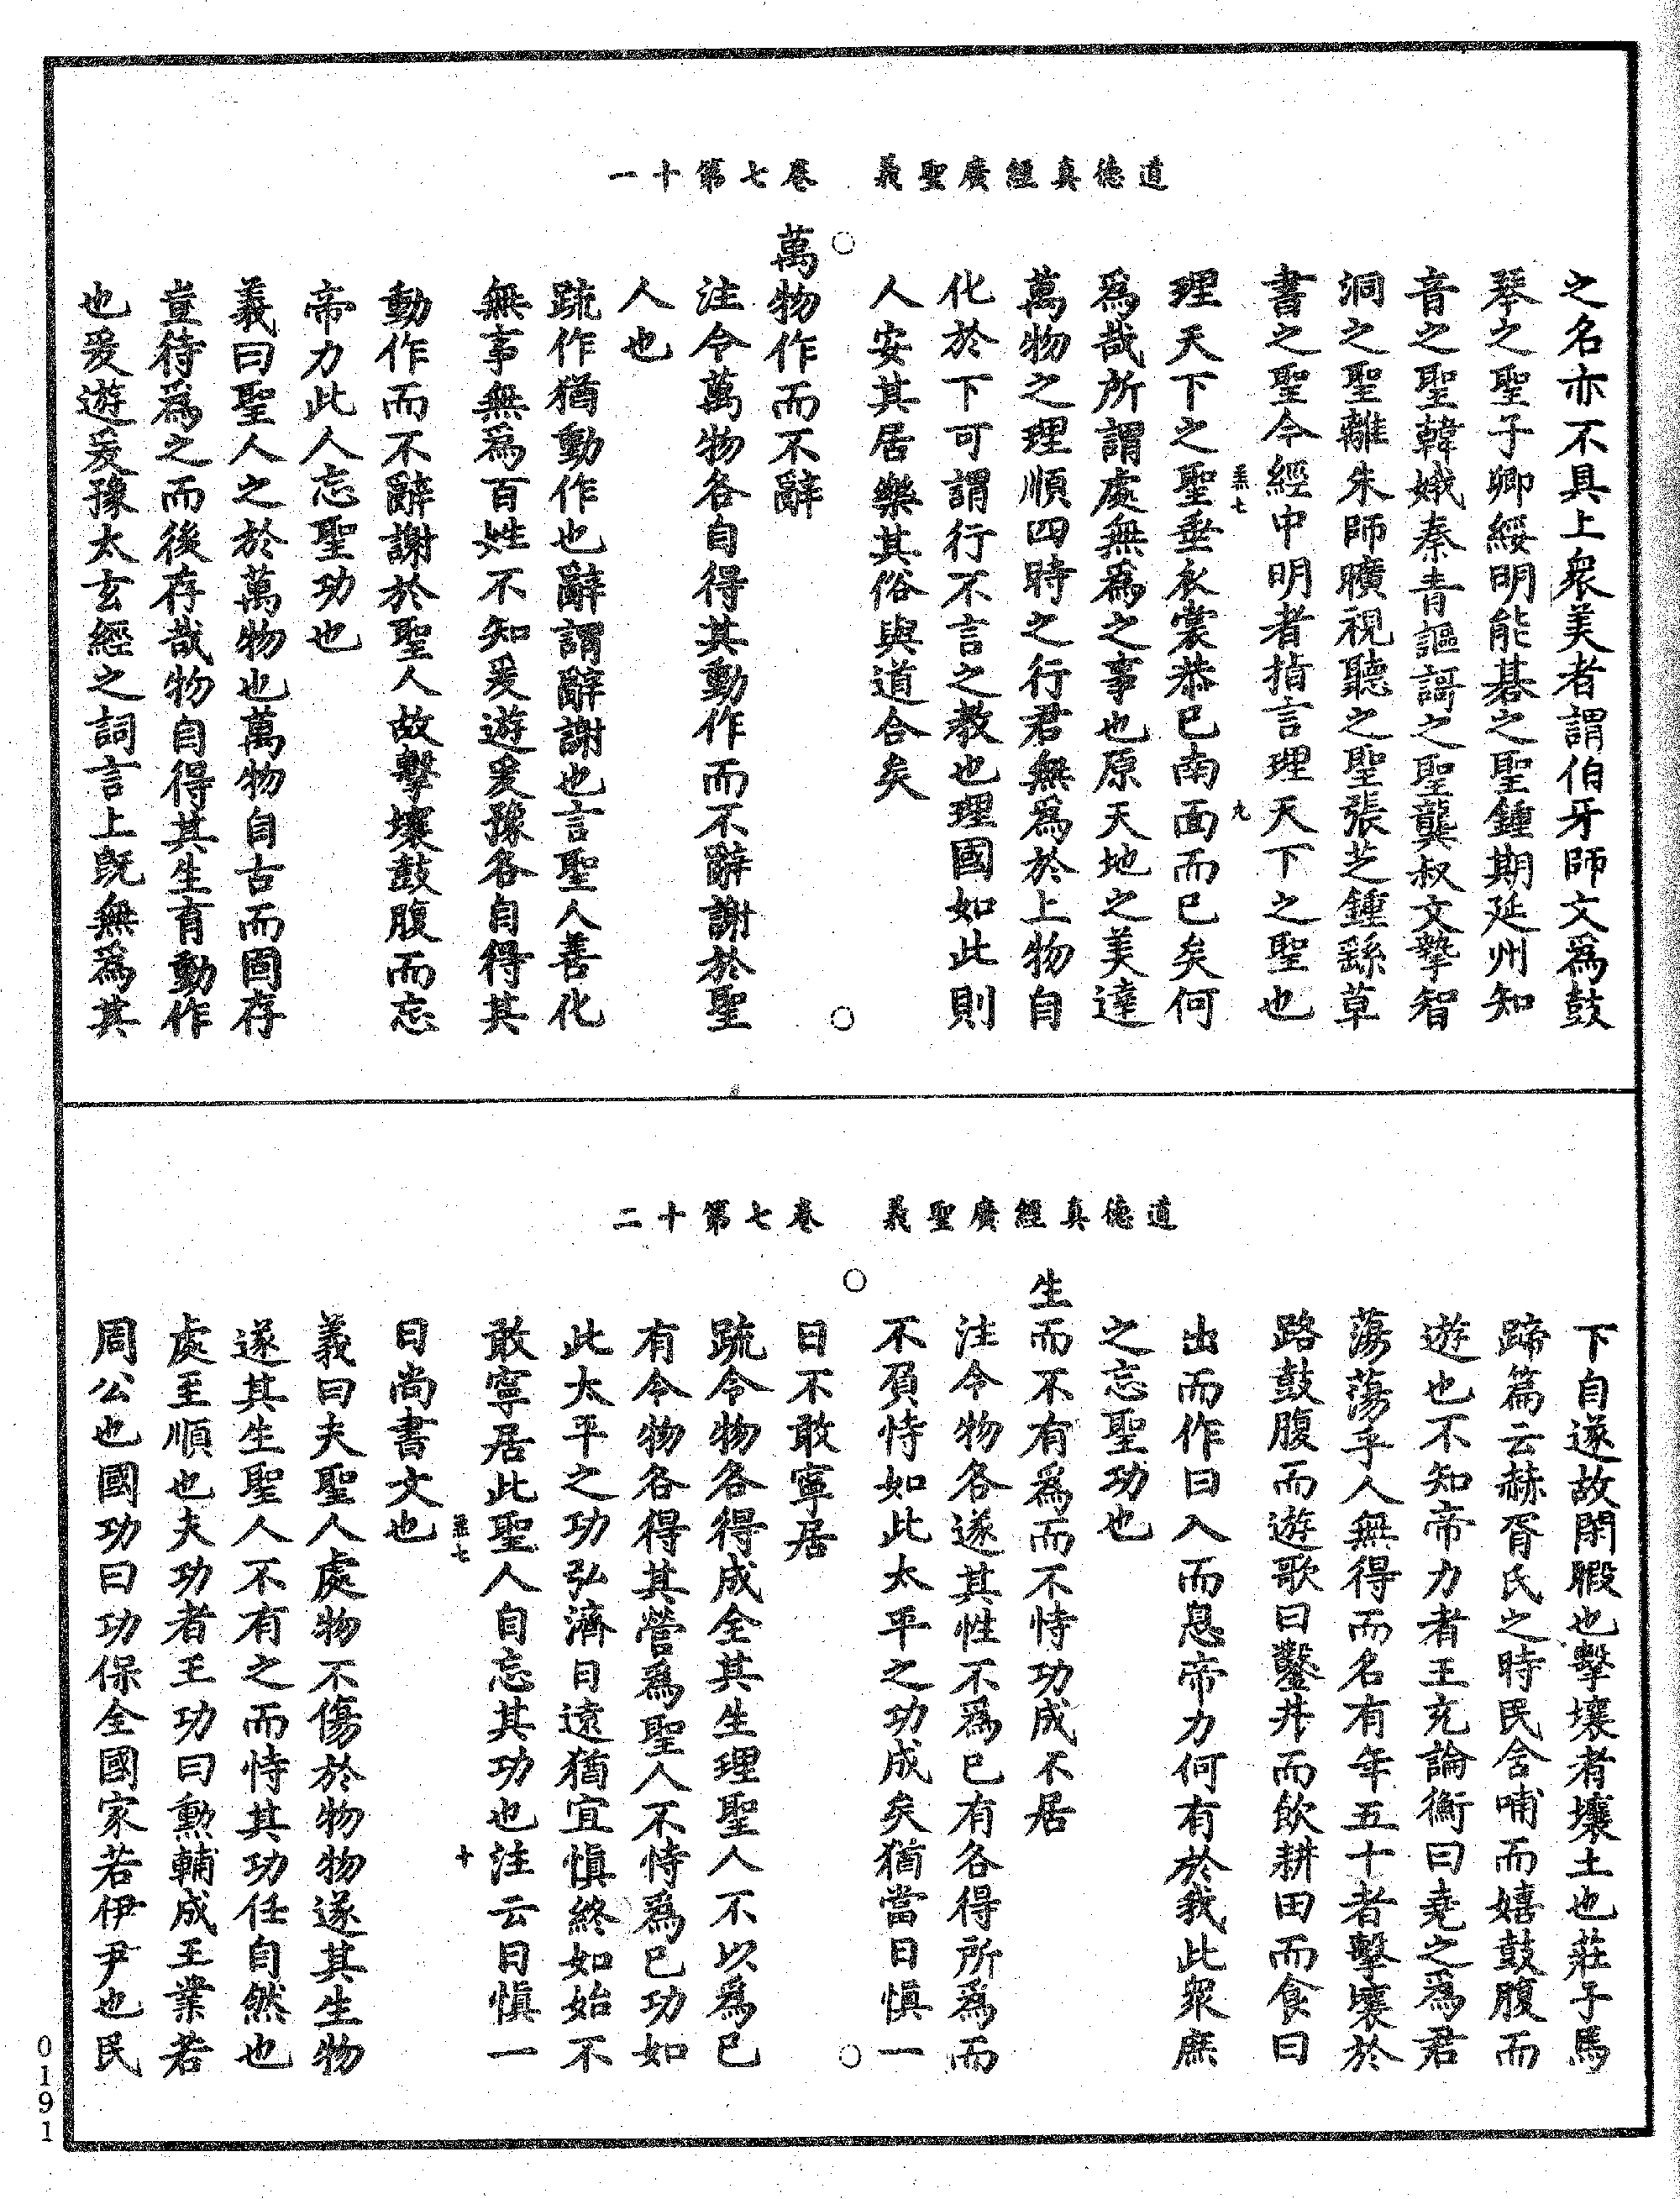 道德真經廣聖義　卷七第十一
之名亦不具上衆美者謂伯牙師文爲鼓
琴之聖子卿綏明能碁之聖鍾期延州知
音之聖韓娥秦青謳謌之聖龔叔文摯智
洞之聖離朱師曠視聽之聖張芝鍾繇草
書之聖今經中明者指言理天下之聖也
羔七　九
理天下之聖垂衣裳恭已南面而已矣何
爲哉所謂處無爲之事也原天地之美達
萬物之理順四時之行君無爲於上物自
化於下可謂行不言之教也理國如此則
人安其居樂其俗與道合矣
○　○
萬物作而不辭
注令萬物各自得其動作而不辭謝於聖
人也
疏作猶動作也辭謂辭謝也言聖人善化
無事無爲百姓不知爰遊爰豫各自得其
動作而不辭謝於聖人故擊壤鼓腹而忘
帝力此人忘聖功也
義曰聖人之於萬物也萬物自古而固存
豈待爲之而後存哉物自得其生育動作
也爰遊爰豫太玄經之詞言上旣無爲其
道德真經廣聖義　卷七第十二
下自遂故閑暇也擊壤者壤土也莊子馬
蹄篇云赫胥氏之時民含哺而嬉鼓腹而
遊也不知帝力者王充論衡曰堯之爲君
蕩蕩乎人無得而名有年五十者擊壤於
路鼓腹而遊歌曰鑿井而飲耕田而食曰
出而作曰入而息帝力何有於我此衆庶
之忘聖功也
生而不有爲而不恃功成不居
注令物各遂其性不爲已有各得所爲而
不負恃如此太平之功成矣猶當日慎一
○　○
日不敢寧居
疏令物各得成全其生理聖人不以爲已
有令物各得其營爲聖人不恃爲已功如
此太平之功弘濟日遠猶宜慎終如始不
敢寧居此聖人自忘其功也注云日慎一
羔七　十
日尚書文也
義曰夫聖人處物不傷於物物遂其生物
遂其生聖人不有之而恃其功任自然也
處王順也夫功者王功曰勲輔成王業若
周公也國功曰功保全國家若伊尹也民
0191